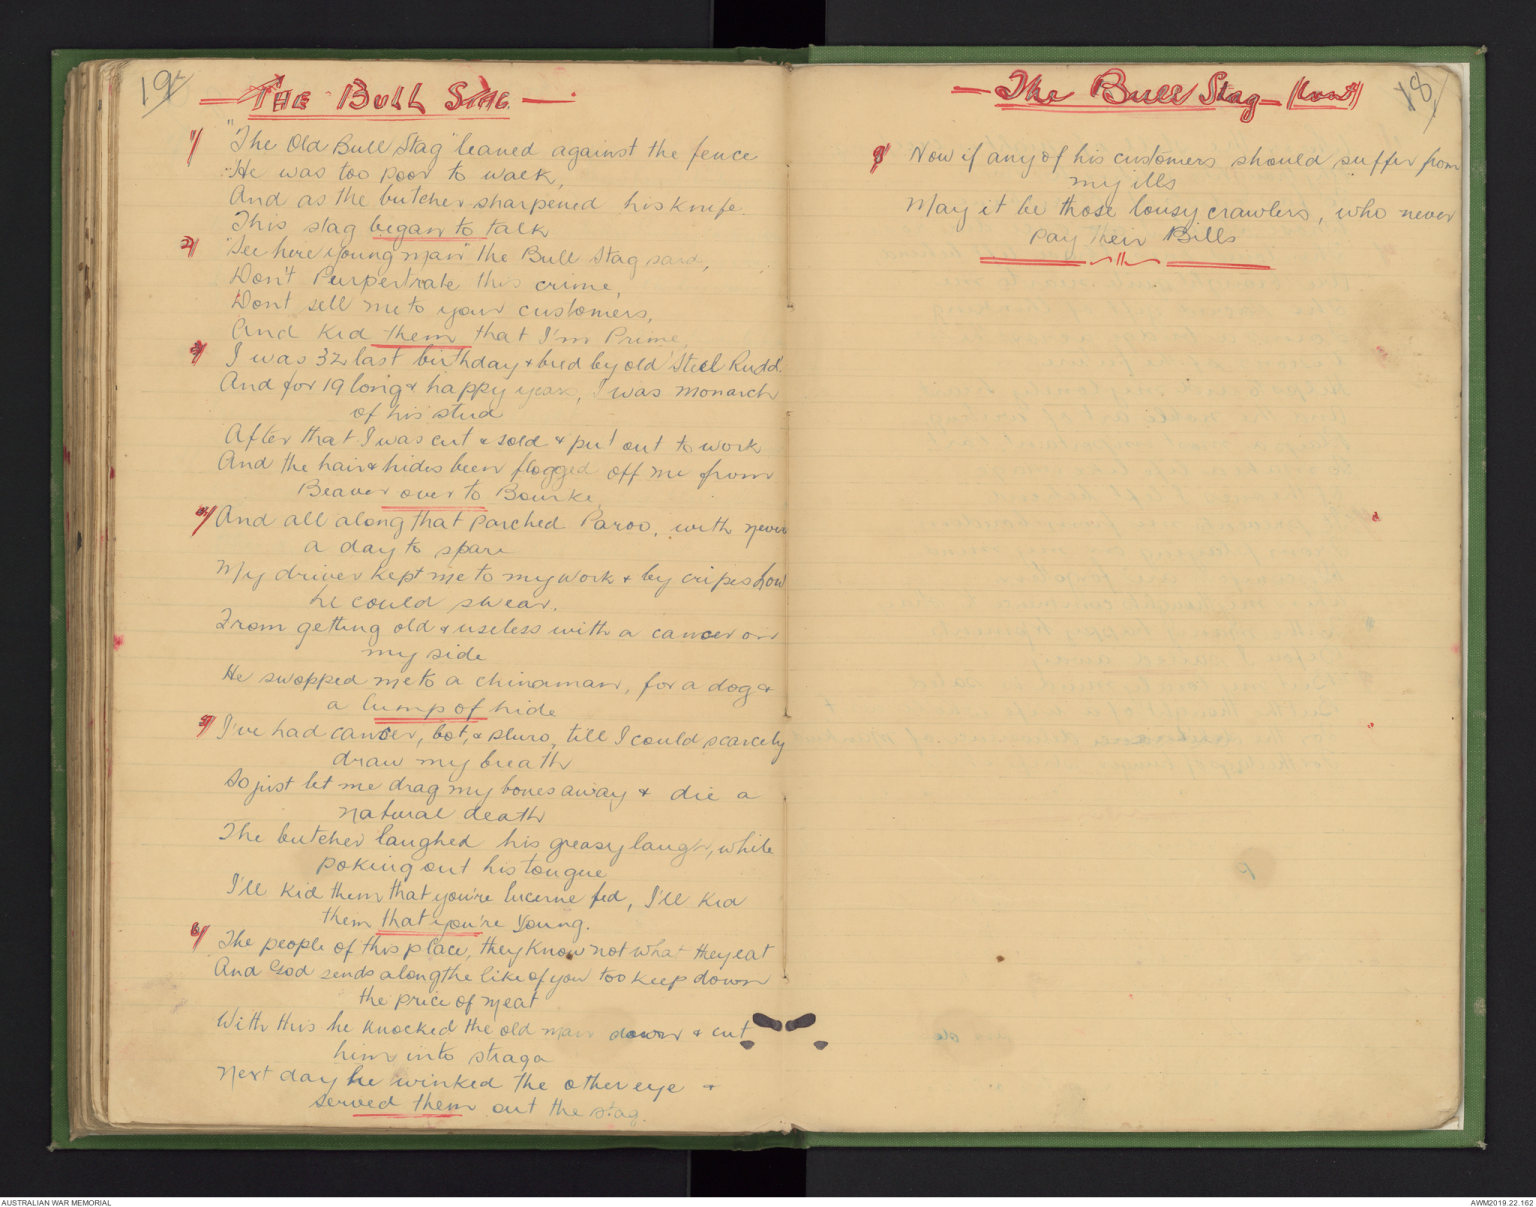 19
— The Bull Stag —.
1/ "The Old Bull Stag" leaned against the fence
He was too poor to walk,
And as the butcher sharpened his knife.
This stag began to talk
2/ "See here young man" the Bull Stag said,
Don't Purpertrate this crime,
Dont sell me to your customers,
And kid them that I'm Prime,
3/ I was 32 last birthday & bred by old Steel Rudd.
And for 19 long & happy years, I was monarch
of his stud
After that I was cut & sold & put out to work
And the hair & hides been flogged off me from
Beaver over to Bourke,
4/ And all along that parched Paroo, with never
a day to spare
My driver kept me to my work & by cripes how
he could swear.
From getting old & useless with a cancer on
my side
He swopped me to a chinaman, for a dog &
a lump of hide
5/ I've had cancer, bot, & pluro, till I could scarcely
draw my breath
So just let me drag my bones away & die a
natural death
The butcher laughed his greasy laugh, while
poking out his tongue
I'll kid them that you're lucerne fed, I'll kid
them that you're Young.
6/ The people of this place, they know not what they eat
And God sends along the like of you too keep down
the price of meat
With this he knocked the old man down & cut
him into straga
Next day he winked the other eye &
served them out the stag.
18
— The Bull Stag — (Cont)
Now if any of his customers should suffer from
my ills
May it be those lousy crawlers, who never
pay their Bills
AUSTRALIAN WAR MEMORIAL
AWM2019.22.162